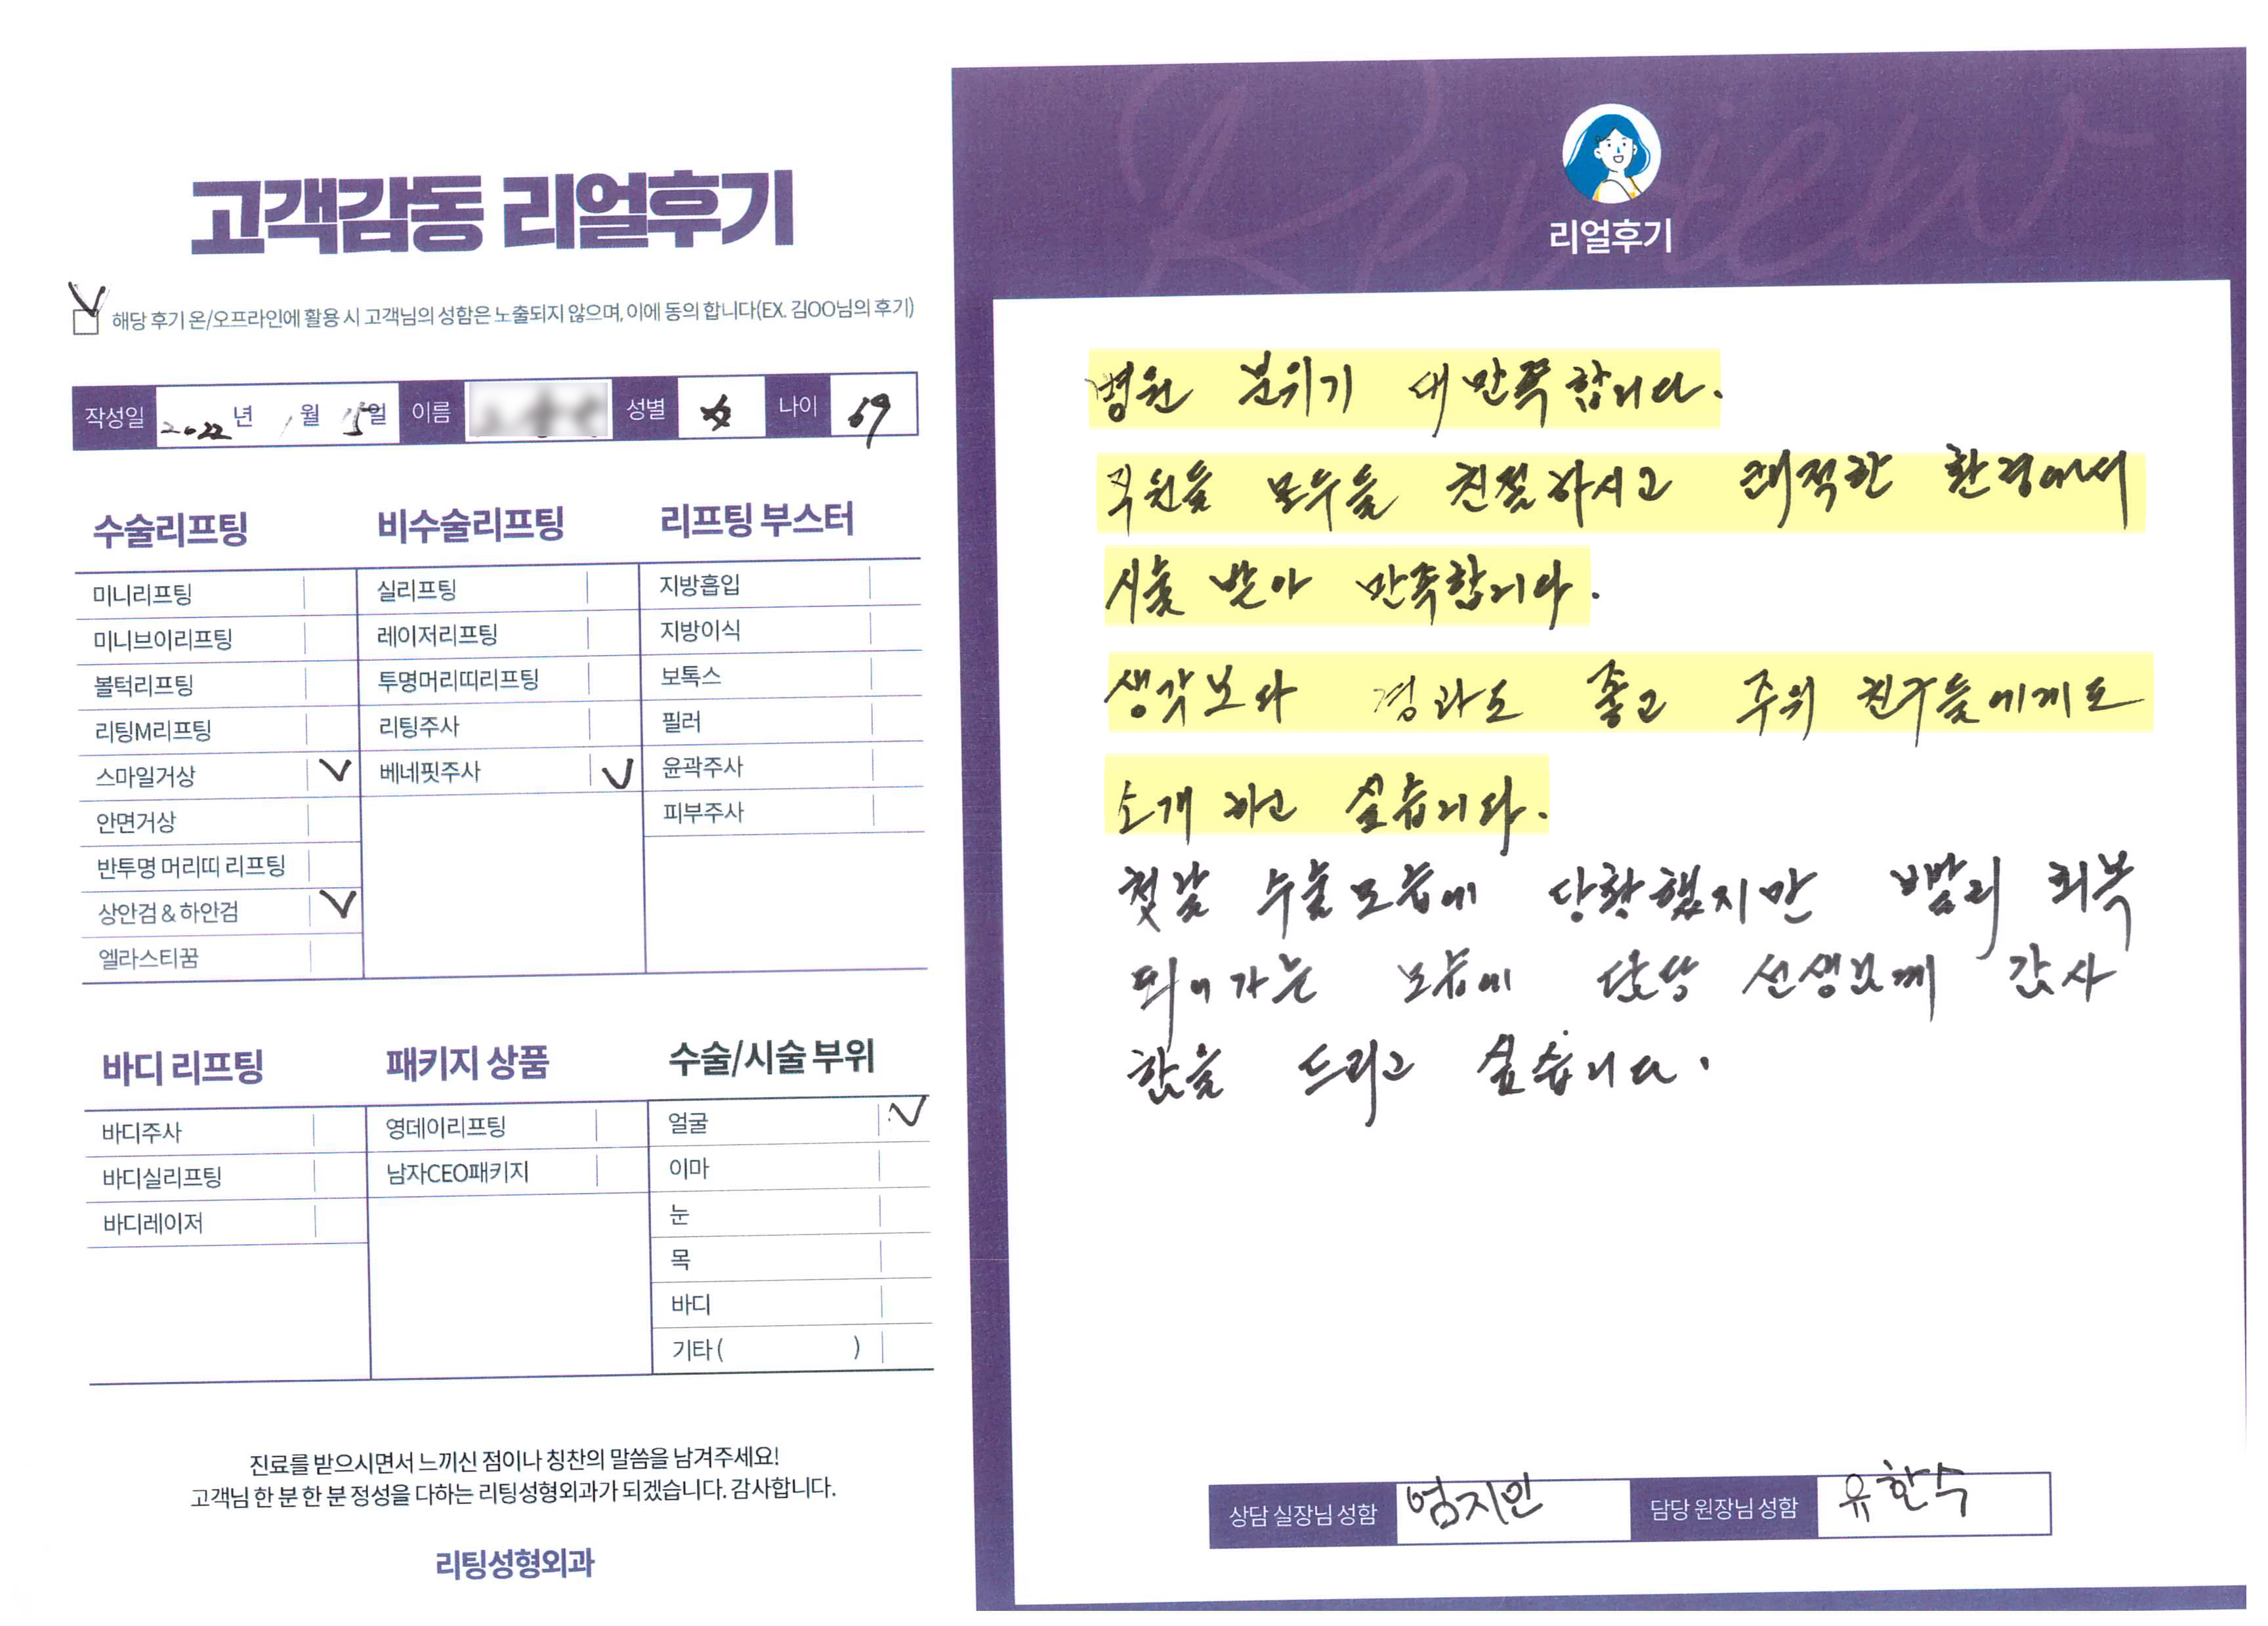 고객감동 리얼후기
해당 후기 온/오프라인에 활용 시 고객님의 성함은 노출되지 않으며, 이에 동의 합니다(EX. 김OO님의 후기)
작성일 2022 년 1 월 15일 이름 성별 나이 69
수술리프팅
미니리프팅
미니브이리프팅
볼턱리프팅
리팅M리프팅
스마일거상 V
안면거상
반투명 머리띠 리프팅
상안검 & 하안검 V
엘라스티꿈
비수술리프팅
실리프팅
레이저리프팅
투명머리띠리프팅
리팅주사
베네핏주사 V
리프팅 부스터
지방흡입
지방이식
보톡스
필러
윤곽주사
피부주사
바디 리프팅
바디주사
바디실리프팅
바디레이저
패키지 상품
영데이리프팅
남자CEO패키지
수술/시술 부위
얼굴 V
이마
눈
목
바디
기타 ( )
진료를 받으시면서 느끼신 점이나 칭찬의 말씀을 남겨주세요!
고객님 한 분 한 분 정성을 다하는 리팅성형외과가 되겠습니다. 감사합니다.
리팅성형외과
Review
리얼후기
병원 분위기 대만족합니다.
직원들 모두들 친절하시고 쾌적한 환경에서
시술 받아 만족합니다.
생각보다 경과도 좋고 주위 친구들에게도
소개 하고 싶습니다.
첫날 수술모습에 당황했지만 빨리 회복
되어가는 모습에 담당 선생님께 감사
함을 드리고 싶습니다.
상담 실장님 성함 엄지민 담당 원장님 성함 유한수